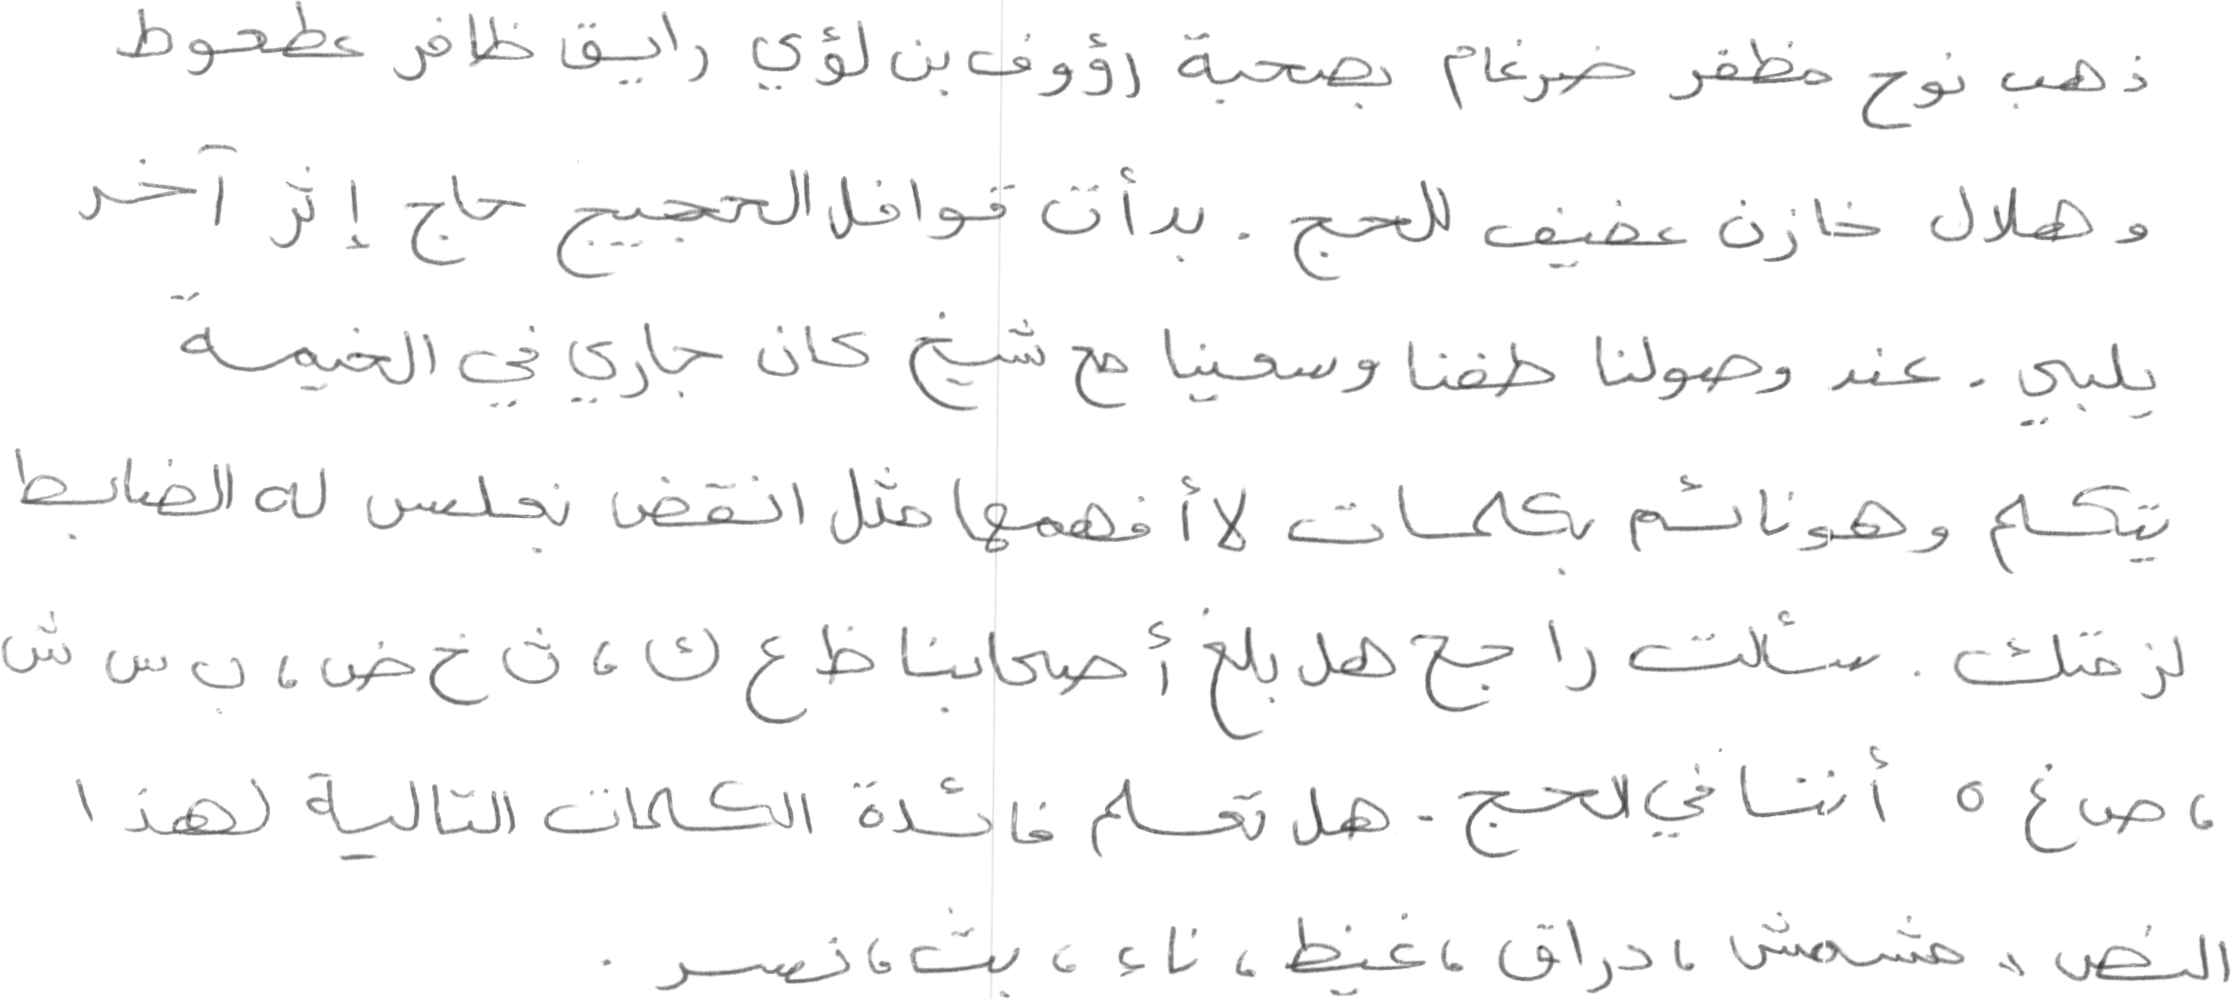 ذهب نوح مظفر ضرغام بصحبة رؤوف بن لؤي رايق ظافر عطعوط
وهلال خازن عفيف للحج . بدأت قوافل الحجيج حاج إثر آخر
يلبي . عند وصولنا طفنا وسعينا مع شيخ كان جاري في الخيمة
يتكلم وهو نائم بكلمات لا أفهمها مثل انقض نجلس له الضابط
لزمتك . سألت راجح هل بلغ أصحابنا ظ ع ك ، ث خ ض ، ب س ش
، ص غ ه أننا في الحج . هل تعلم فائدة الكلمات التالية لهذا
النص : مشمش ، دراق ، غيظ ، ناء ، بث ، نسر .